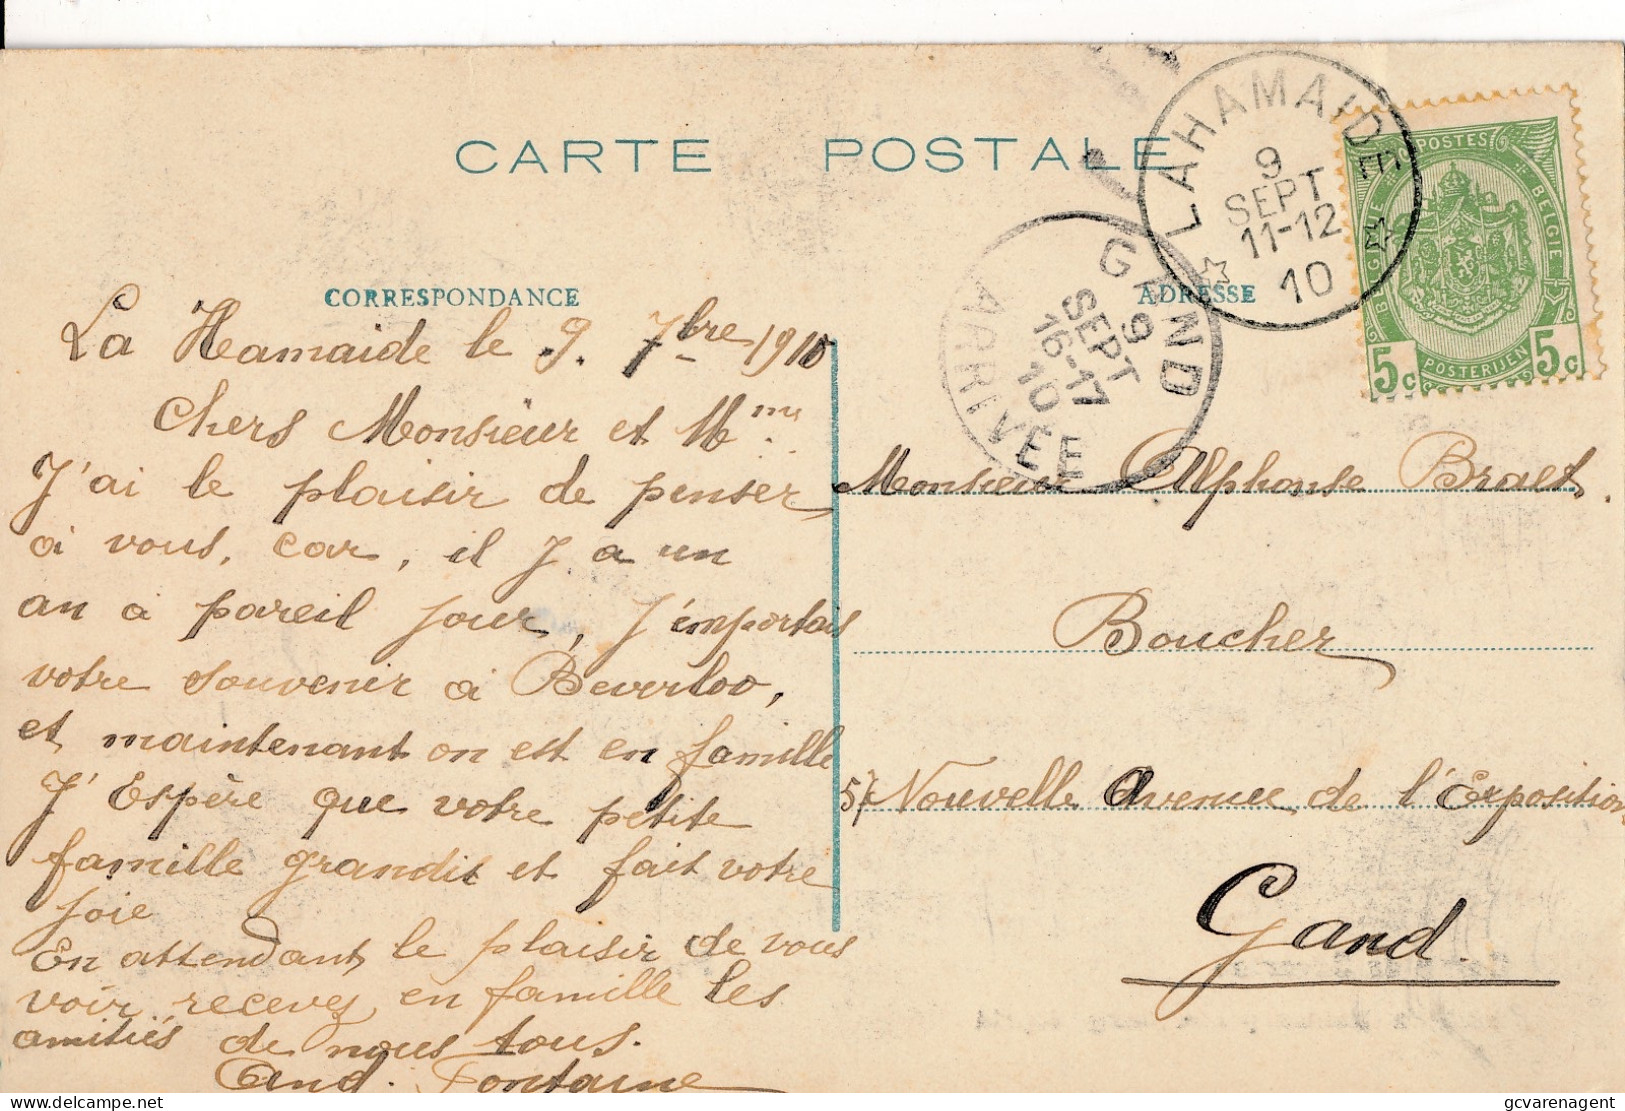 CARTE POSTALE
LAHAMAIDE
9
SEPT
11-12
10
GAND
9
SEPT
16-17
10
ARRIVÉE
POSTES
BELGIE
BELGIE
POSTERIJEN
5c
5c
CORRESPONDANCE
ADRESSE
La Hamaide le 9. 7bre 1910
Chers Monsieur et Mme
J'ai le plaisir de penser
à vous, car, il y a un
an à pareil jour, j'emportais
votre souvenir à Beverloo,
et maintenant on est en famille
J'Espère que votre petite
famille grandit et fait votre
joie
En attendant le plaisir de vous
voir recevez en famille les
amitiés de nous tous.
Fontaine
Monsieur Alphonse Braet.
Boucher
Nouvelle Avenue de l'Exposition
Gand.
gcvarenagent